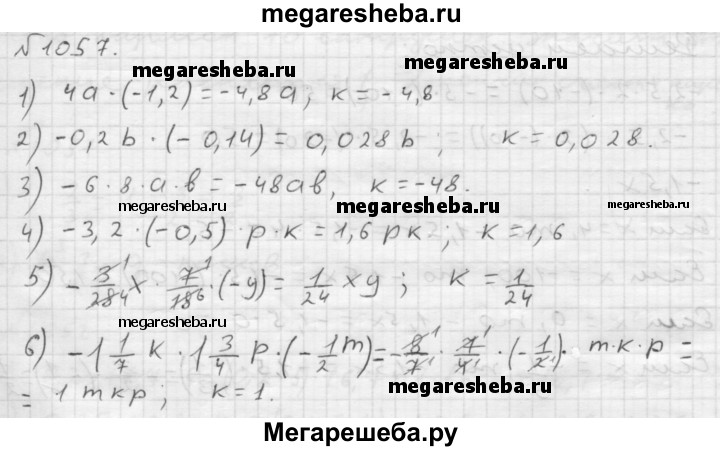 megaresheba.ru
№1057.
megaresheba.ru megaresheba.ru
1) 4a·(-1,2)=-4,8a; к=-4,8
2) -0,2b·(-0,14)=0,028b; к=0,028.
3) -6·8·a·в=-48aв, к=-48.
megaresheba.ru megaresheba.ru megaresheba.ru
4) -3,2·(-0,5)·p·к=1,6pк; к=1,6
5) -3/28x·7/18·(-y)=1/24xy; к=1/24
megaresheba.ru
6) -1 1/7 к·1 3/4 p·(-1/2 m)=-8/7·7/4·(-1/2)·m·к·p=
megaresheba.ru
=1mкp; к=1.
Мегарешеба.ру